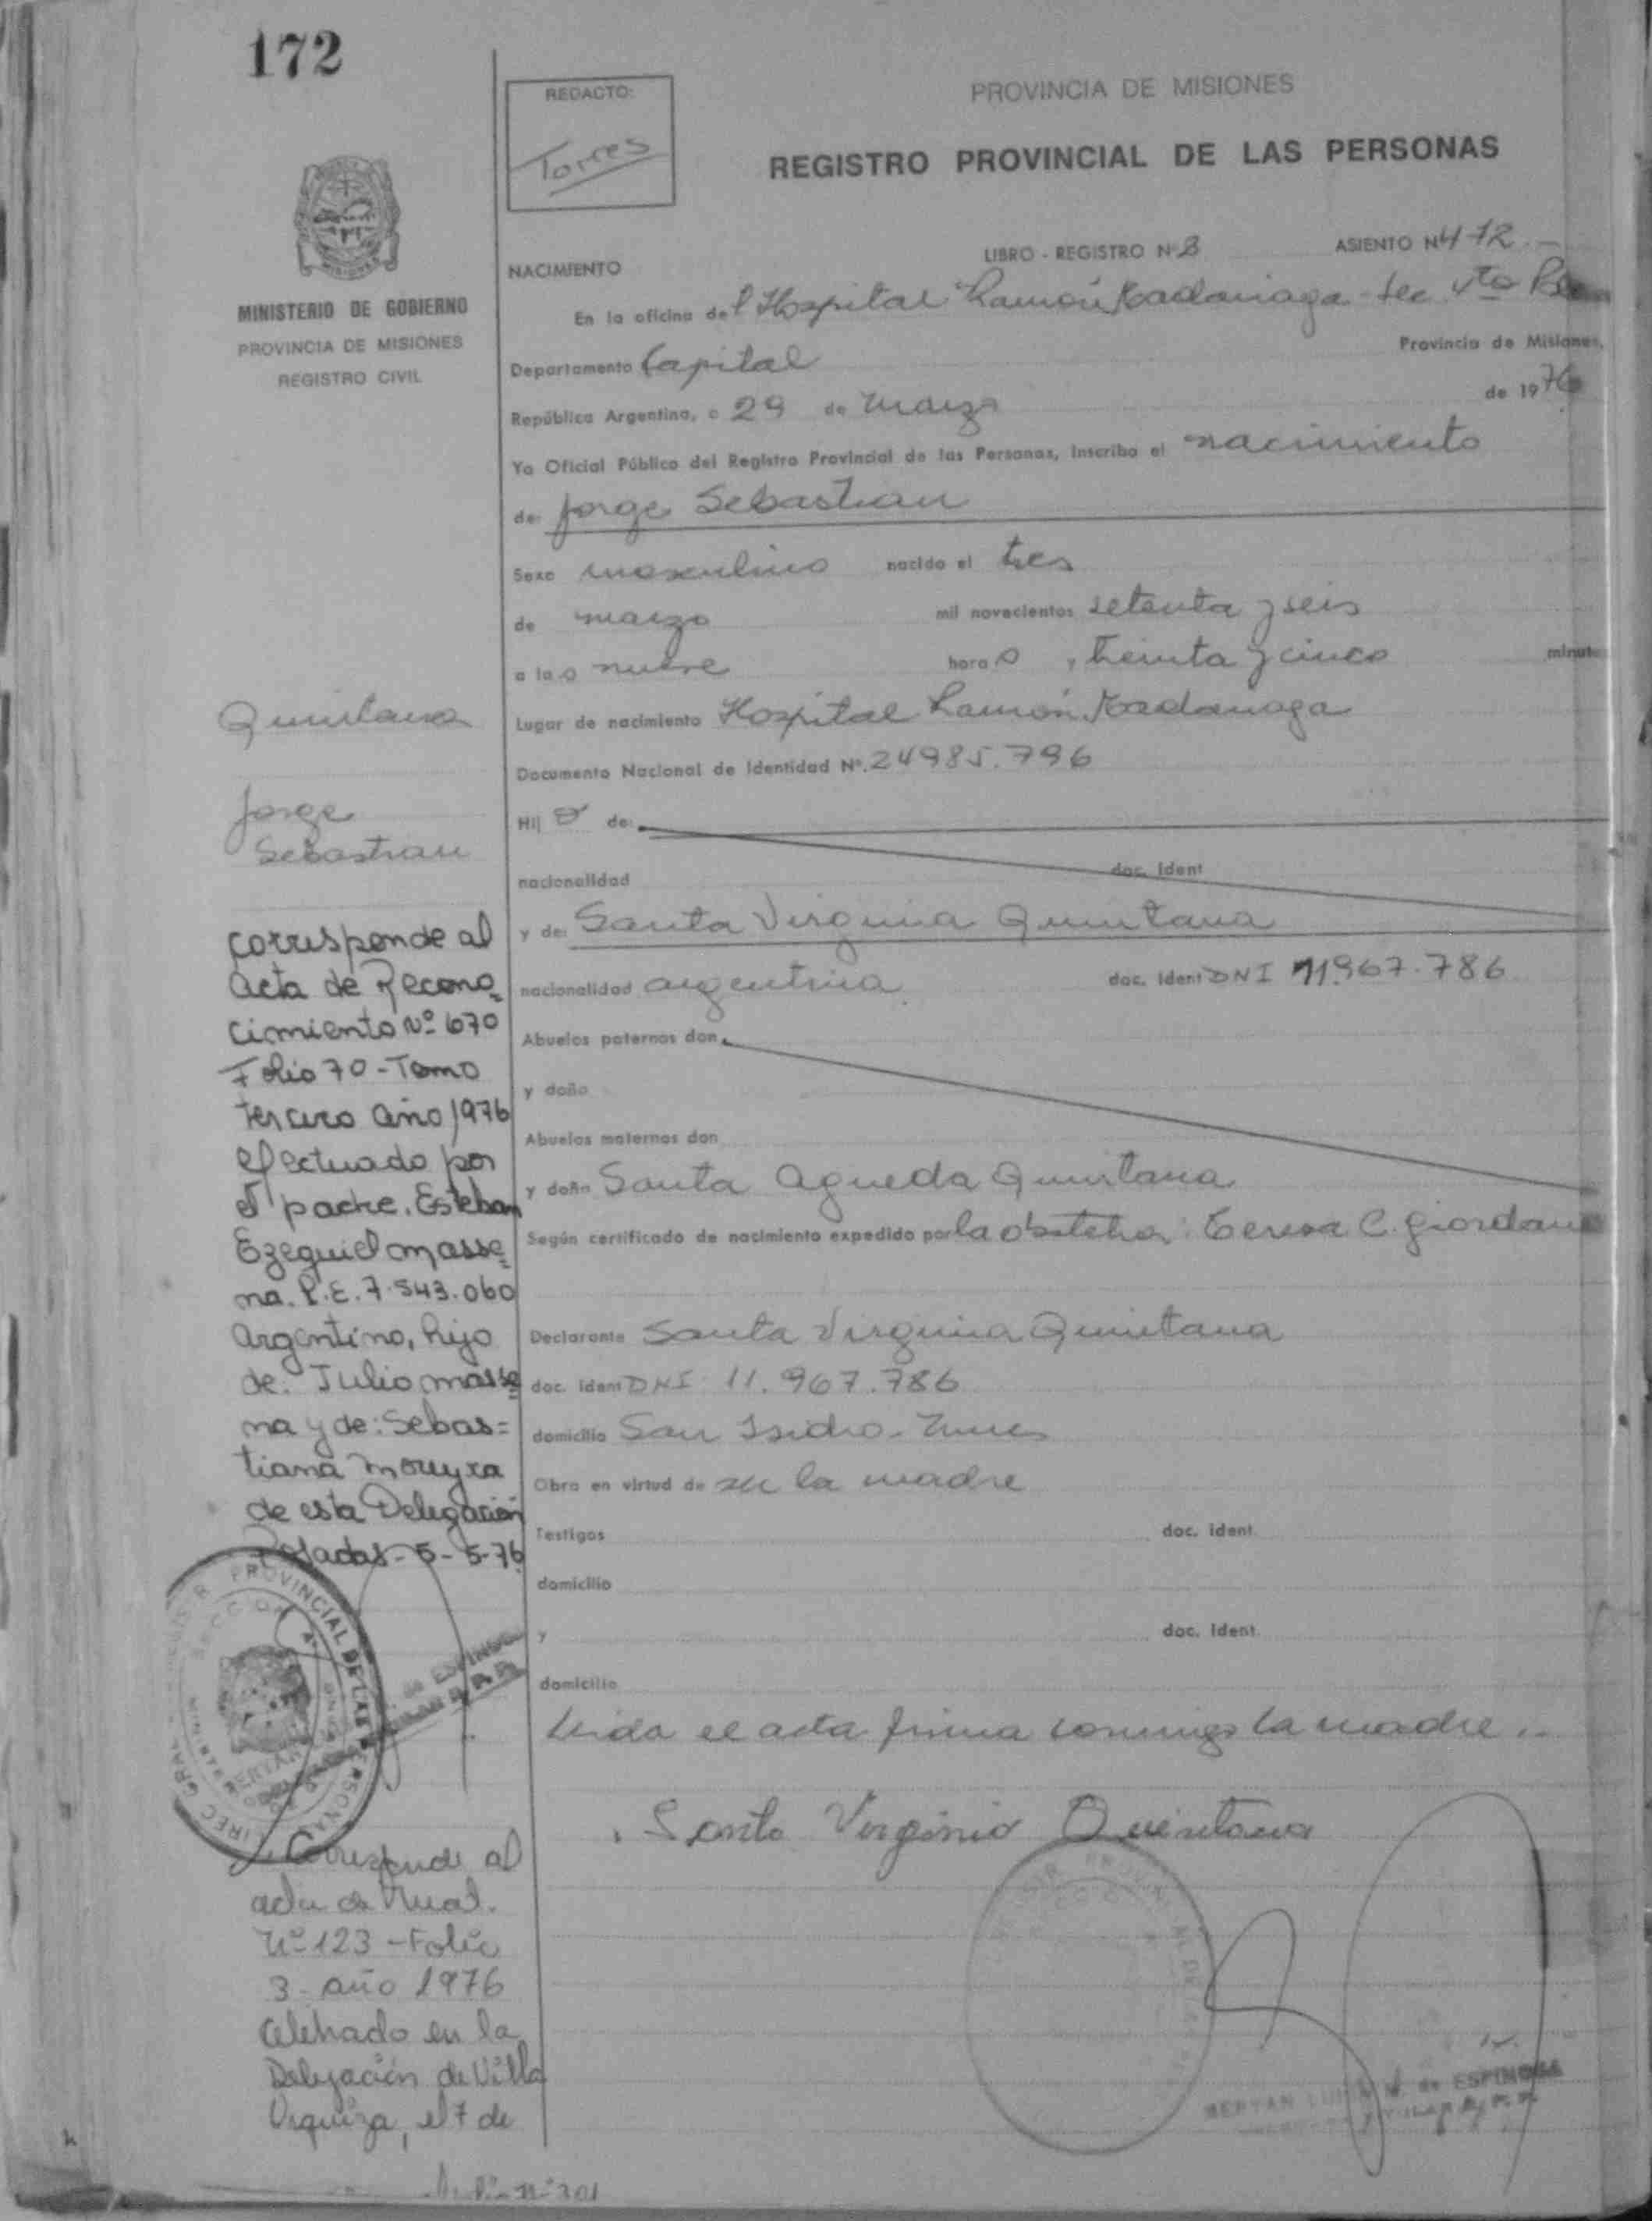 172
REDACTO:
Torres
PROVINCIA DE MISIONES
REGISTRO PROVINCIAL DE LAS PERSONAS
MINISTERIO DE GOBIERNO
PROVINCIA DE MISIONES
REGISTRO CIVIL
NACIMIENTO
LIBRO - REGISTRO Nº 8
ASIENTO Nº 472
En la oficina del Hospital Ramón Madariaga - Sec. Vta
Departamento Capital
Provincia de Misiones,
República Argentina, a 29 de Marzo de 1976
Yo Oficial Público del Registro Provincial de las Personas, Inscribo el nacimiento
de: Jorge Sebastian
Sexo masculino nacido el tres
de marzo mil novecientos setenta y seis
a las nueve horas y treinta y cinco minutos
Lugar de nacimiento Hospital Ramón Madariaga
Documento Nacional de Identidad Nº. 24985.796
Hijo de:
nacionalidad doc. Ident
y de: Santa Virginia Quintana
nacionalidad argentina doc. Ident DNI 11.967.786
Abuelos paternos don
y doña
Abuelos maternos don
y doña Santa Agueda Quintana
Según certificado de nacimiento expedido por la obstetra: Teresa C. Giordano
Declarante Santa Virginia Quintana
doc. Ident DNI 11.967.786
domicilio San Isidro
Obra en virtud de ser la madre
Testigos doc. ident.
domicilio
y doc. Ident.
domicilio
Leida el acta firma conmigo la madre..
Santa Virginia Quintana
de ESPINOSA
Quintana
Jorge
Sebastian
Corresponde al
Acta de Recono=
cimiento Nº 670
Folio 70 - Tomo
tercero año 1976
efectuado por
el padre. Esteban
Ezequiel Masse=
na. L.E. 7.543.060
Argentino, hijo
de: Julio Masse=
na y de: Sebas=
tiana Moreyra
de esta Delegación
Posadas - 5-5-76
Corresponde al
acta de Mat.
Nº 123 - Folio
3 - año 1976
Celebrado en la
Delegación de Villa
Urquiza, el 7 de